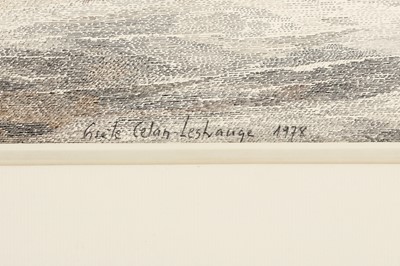 Gisèle Celan-Lestrange 1978